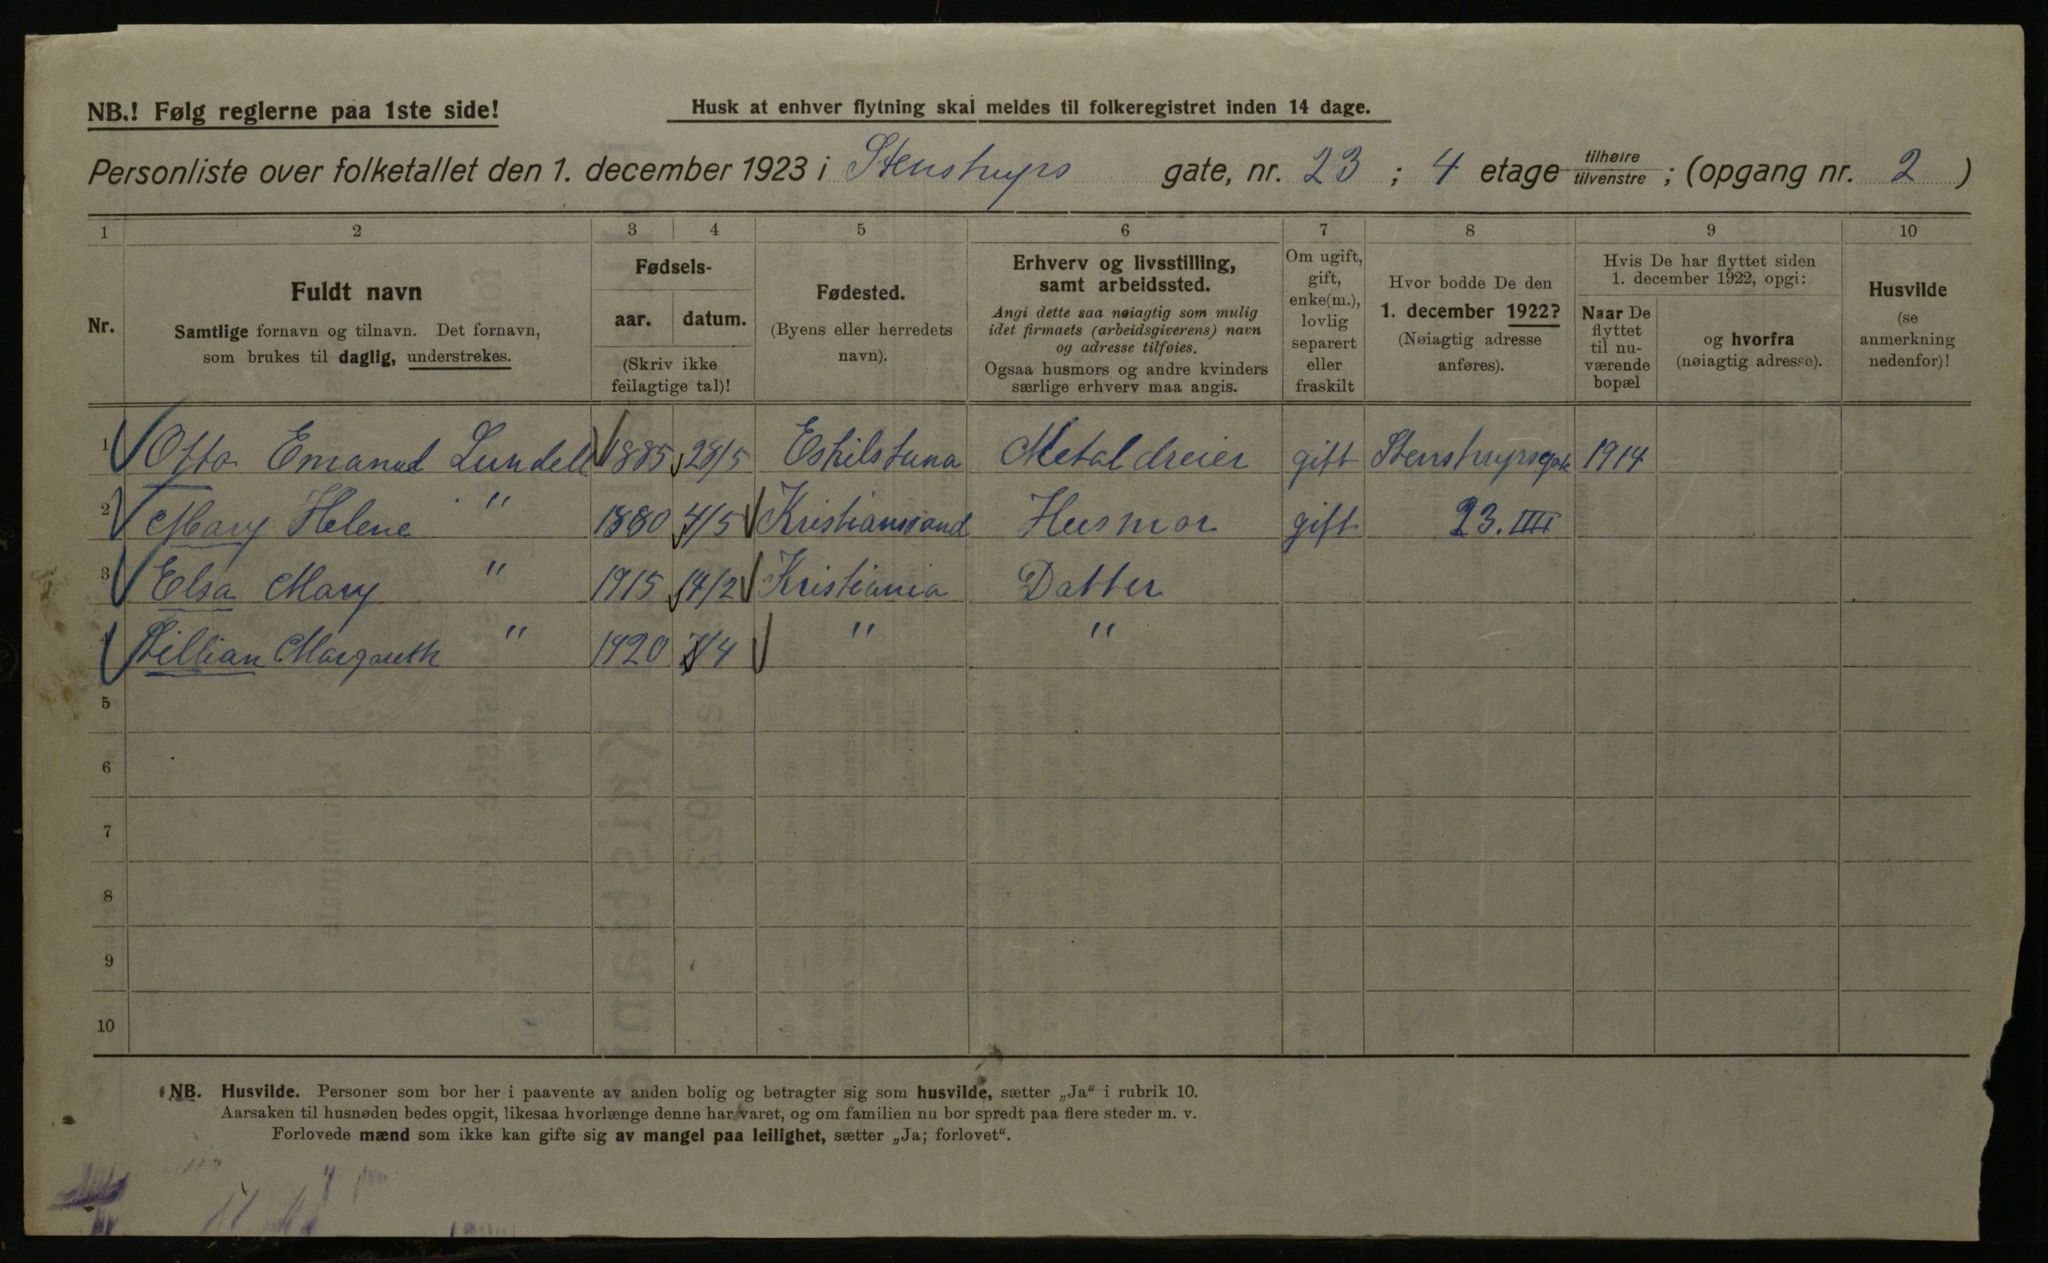 NB.! Følg reglerne paa 1ste side!
Husk at enhver flytning skal meldes til folkeregistret inden 14 dage.
Personliste over folketallet den 1. december 1923 i Stenstrups gate, nr. 23 ; 4 etage tilhøire tilvenstre ; (opgang nr. 2 )
1 2 3 4 5 6 7 8 9 10
Nr.
Fuldt navn
Samtlige fornavn og tilnavn. Det fornavn,
som brukes til daglig, understrekes.
Fødsels-
aar. datum.
(Skriv ikke
feilagtige tal)!
Fødested.
(Byens eller herredets
navn).
Erhverv og livsstilling,
samt arbeidssted.
Angi dette saa nøiagtig som mulig
idet firmaets (arbeidsgiverens) navn
og adresse tilføies.
Ogsaa husmors og andre kvinders
særlige erhverv maa angis.
Om ugift,
gift,
enke(m.),
lovlig
separert
eller
fraskilt
Hvor bodde De den
1. december 1922?
(Nøiagtig adresse
anføres).
Hvis De har flyttet siden
1. december 1922, opgi:
Naar De
flyttet
til nu-
værende
bopæl
og hvorfra
(nøiagtig adresse).
Husvilde
(se
anmerkning
nedenfor)!
1 Otto Emanuel Lundell 1885 28/5 Eskilstuna Metaldreier gift Stenstrupsgate 1914
2 Mary Helene " 1880 4/5 Kristianssand Husmor gift 23. IIII
3 Elsa Mary " 1915 14/2 Kristiania Datter
4 Lillian Margareth " 1920 7/4 " "
5
6
7
8
9
10
NB. Husvilde. Personer som bor her i paavente av anden bolig og betragter sig som husvilde, sætter „Ja“ i rubrik 10.
Aarsaken til husnøden bedes opgit, likesaa hvorlænge denne har varet, og om familien nu bor spredt paa flere steder m. v.
Forlovede mænd som ikke kan gifte sig av mangel paa leilighet, sætter „Ja; forlovet“.